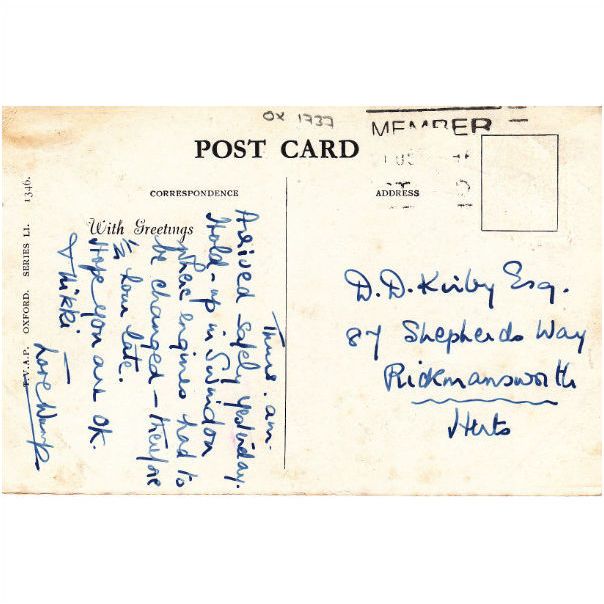 OX 1737
MEMBER
POST CARD
CORRESPONDENCE
ADDRESS
With Greetings
Thurs. am.
Arrived safely yesterday.
Hold-up in Swindon
where engines had to
be changed - therefore
½ hour late.
Hope you are OK.
& Nikki
Love
D.D. Kirby Esq.
87 Shepherds Way
Rickmansworth
Herts
P.V.A.P. OXFORD. SERIES LI. 1346.